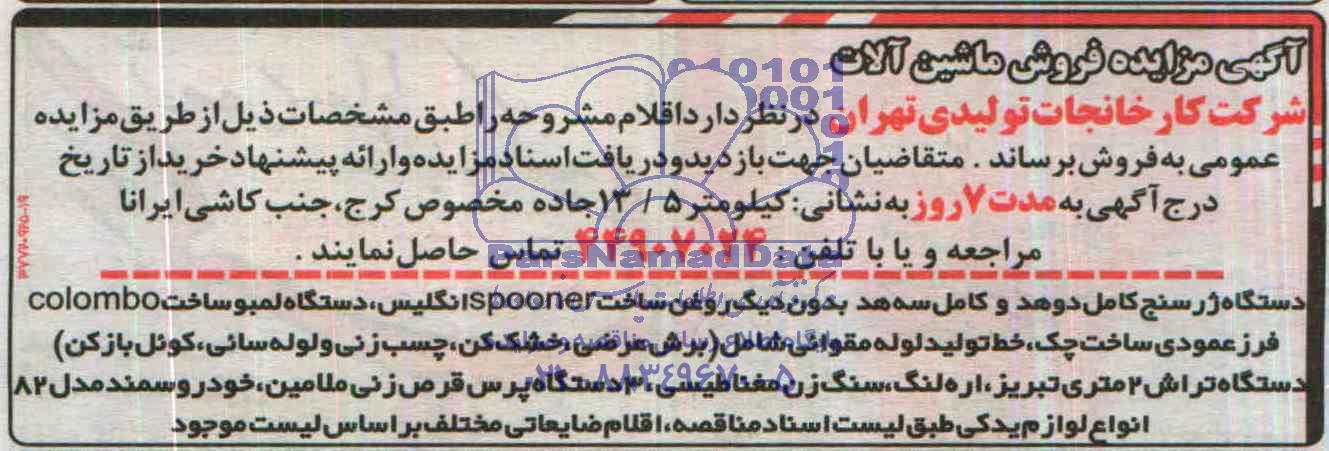 آگهی مزایده فروش ماشین آلات
شرکت کارخانجات تولیدی تهران درنظر دارد اقلام مشروحه را طبق مشخصات ذیل از طریق مزایده
عمومی به فروش برساند . متقاضیان جهت بازدید و دریافت اسناد مزایده و ارائه پیشنهاد خرید از تاریخ
درج آگهی به مدت ۷ روز به نشانی: کیلومتر ۵ / ۱۳ جاده مخصوص کرج، جنب کاشی ایرانا
مراجعه و یا با تلفن : ۴۴۹۰۷۰۷۴ تماس حاصل نمایند .
دستگاه ژر سنج کامل دوهد و کامل سه هد بدون دیگ روغن ساخت spooner انگلیس، دستگاه لمبو ساخت colombo
فرز عمودی ساخت چک، خط تولید لوله مقوائی شامل (برش عرضی، خشک کن، چسب زنی و لوله سائی، کوئل بازکن)
دستگاه تراش ۲ متری تبریز، اره لنگ، سنگ زن مغناطیسی، ۳ دستگاه پرس قرص زنی ملامین، خودرو سمند مدل ۸۲
انواع لوازم یدکی طبق لیست اسناد مناقصه، اقلام ضایعاتی مختلف بر اساس لیست موجود
ParsNamadData
۰۲۱-۸۸۳۴۹۶۷۰-۵